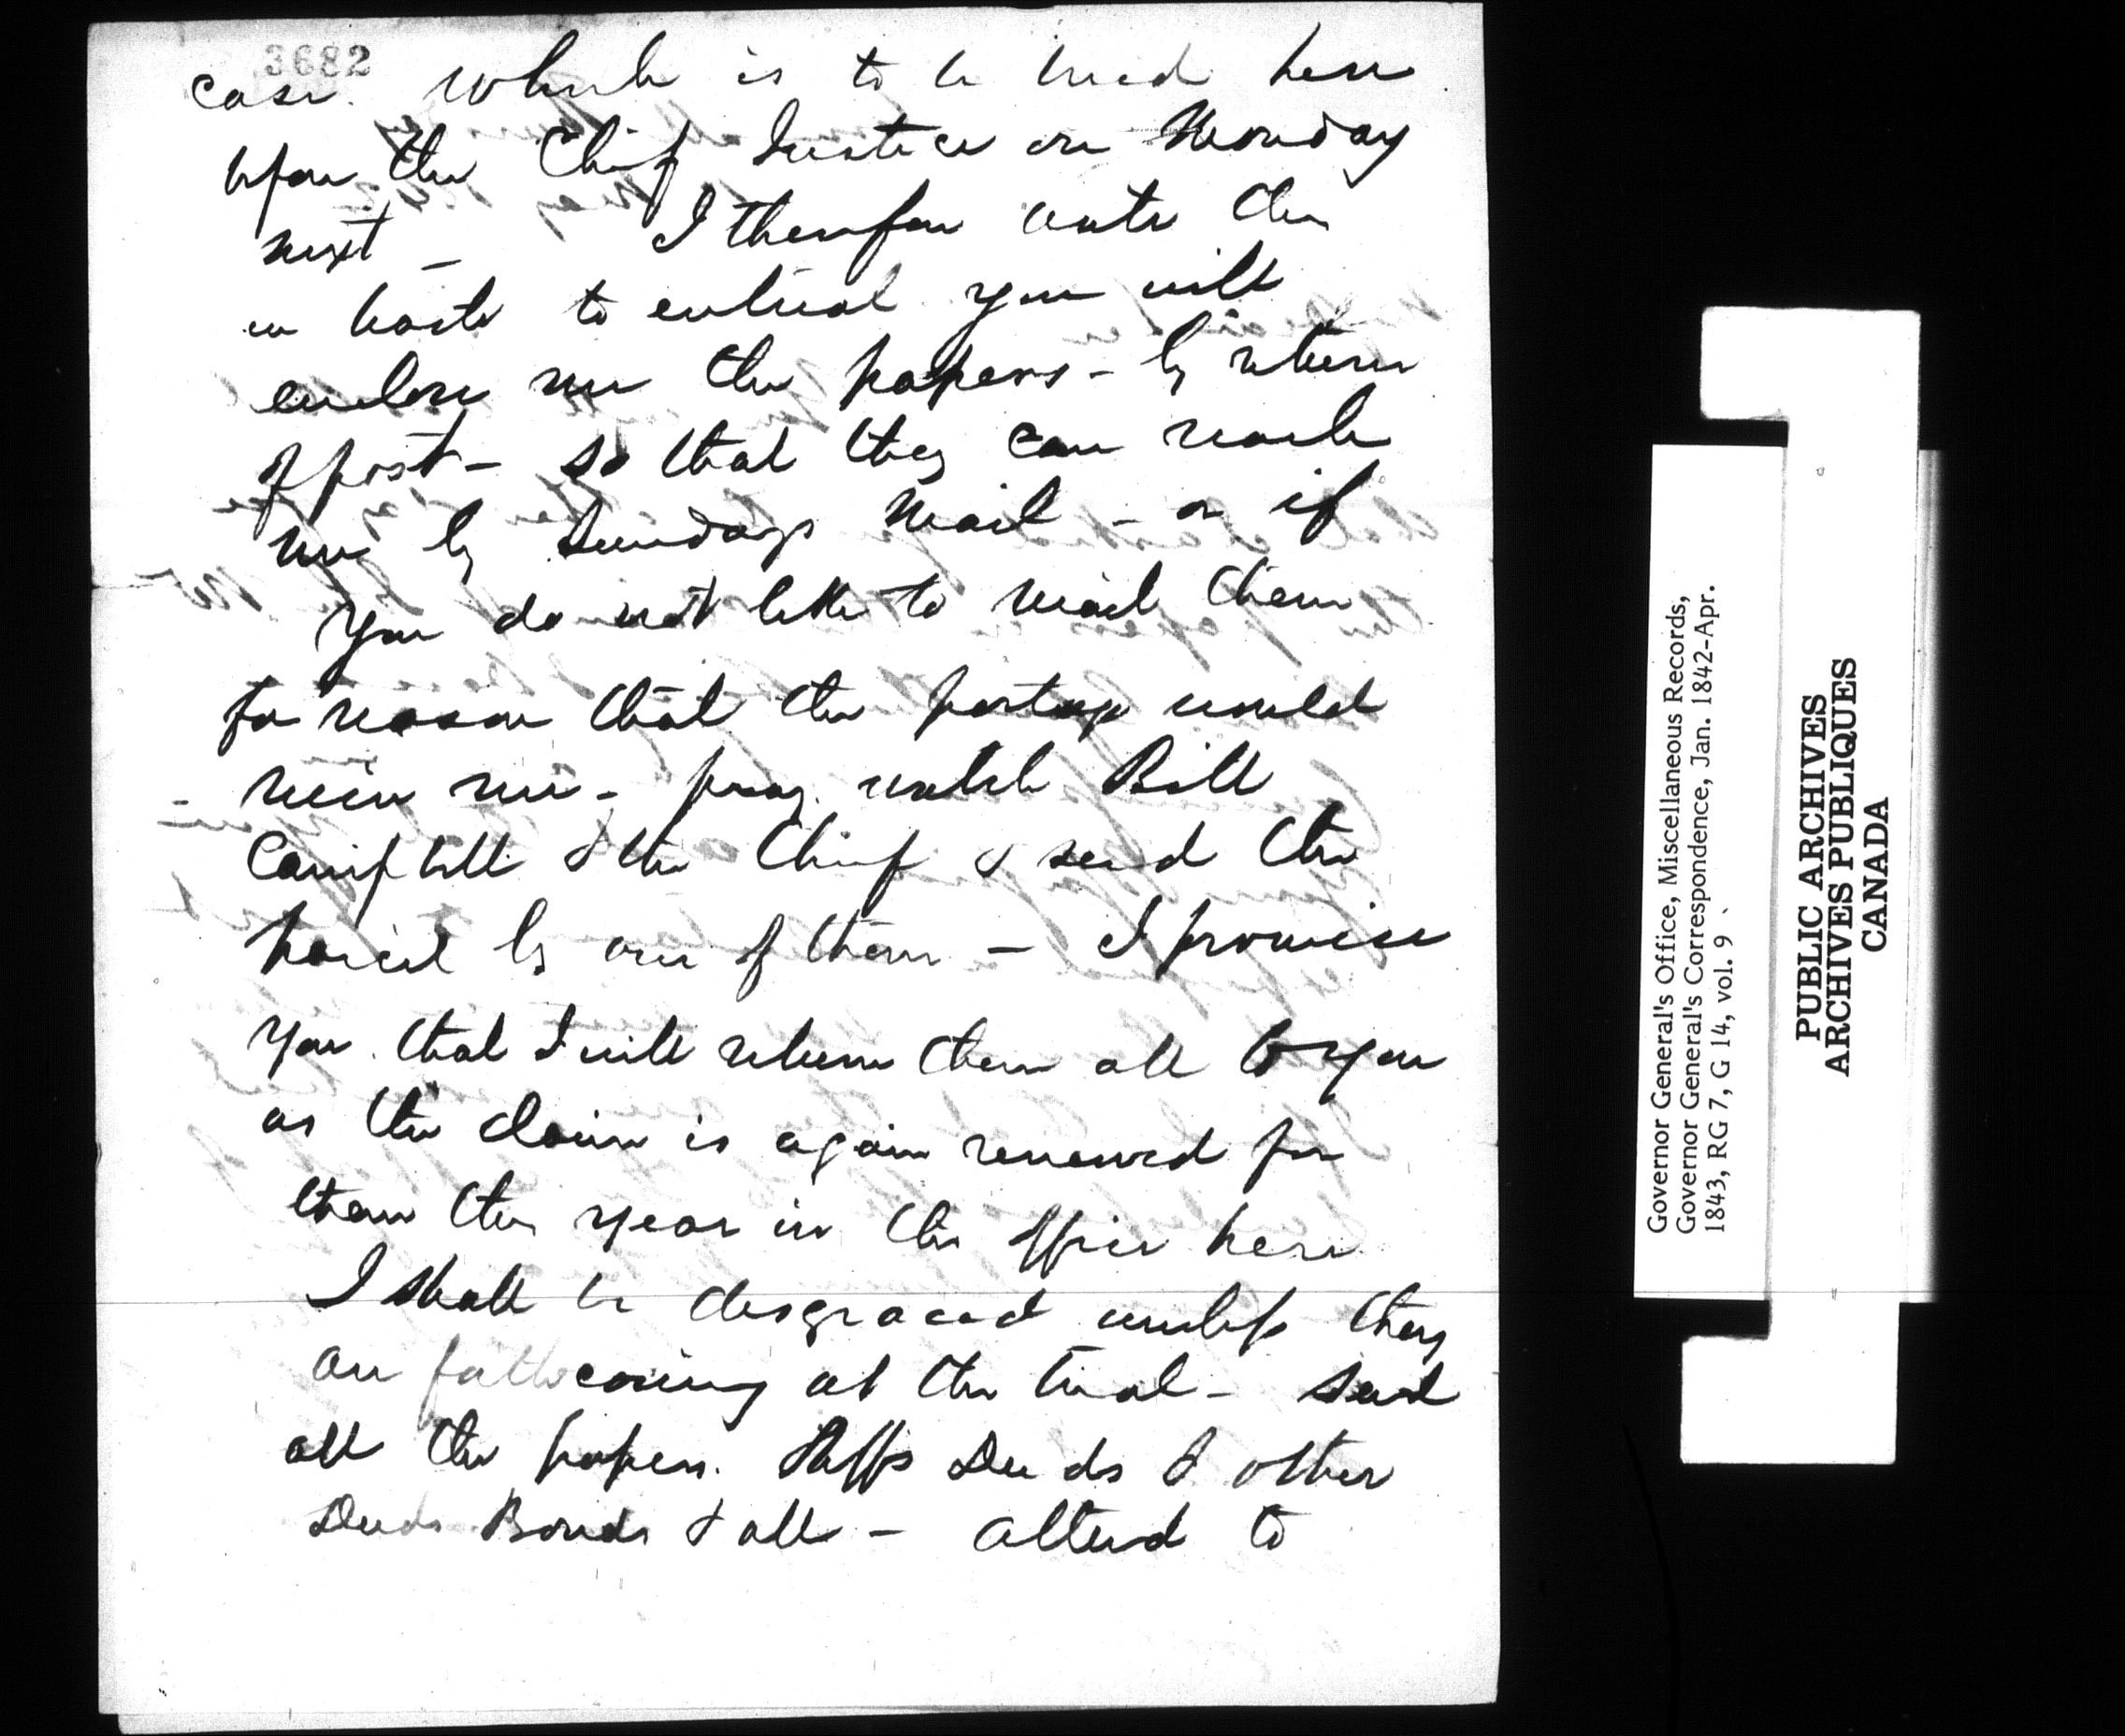 3682
case which is to be tried here
before the Chief Justice on Monday
next — I therefore write this
in haste to entreat you will
enclose me the papers - by return
of post - so that they can reach
me by Sundays Mail - or if
you do not like to mail them
for reason that the postage would
ruin me - pray watch Bill
Campbell & the Chief & send the
parcel by one of them — I promise
you that I will return them all to you
as the claim is again renewed for
them this year in the office here
I shall be disgraced unless they
are forthcoming at the trial - send
all the papers. Deeds & other
Deeds Bonds & all - attend to
Governor General's Office, Miscellaneous Records,
Governor General's Correspondence, Jan. 1842-Apr.
1843, RG 7, G 14, vol. 9
PUBLIC ARCHIVES
ARCHIVES PUBLIQUES
CANADA